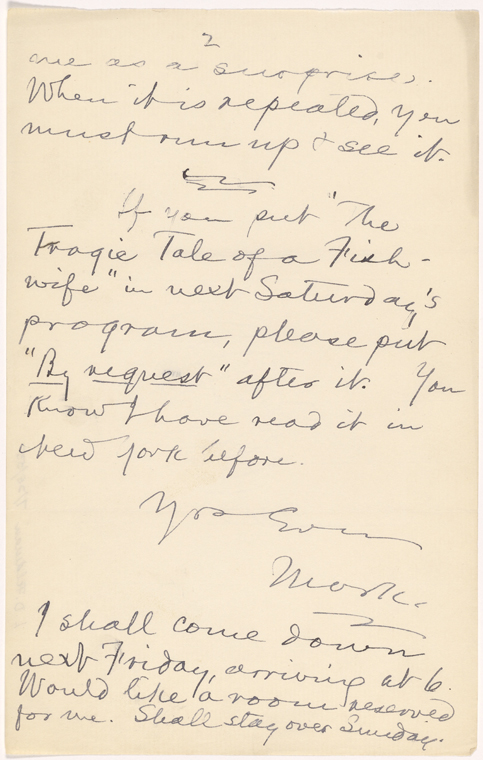 2
me as a surprise.
When it is repeated, you
must run up & see it.
If you put "The
Tragic Tale of a Fish-
wife" in next Saturday's
program, please put
"By request" after it. You
know I have read it in
New York before.
Yrs Ever
Mark.
I shall come down
next Friday, arriving at 6.
Would like a room reserved
for me. Shall stay over Sunday.